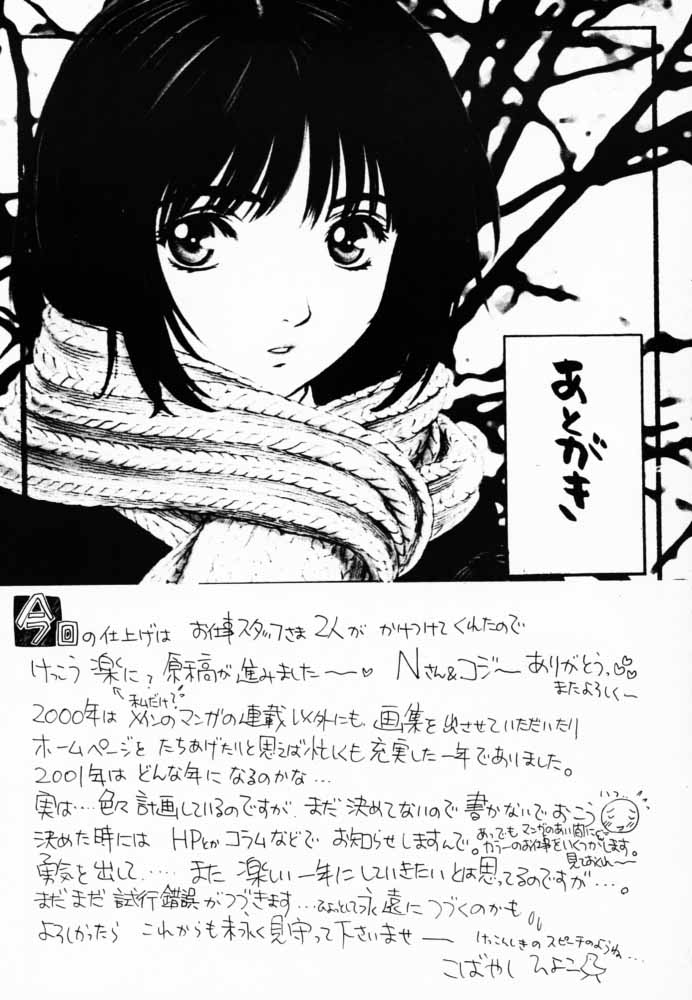 あとがき
今回の仕上げは お仕事スタッフさま2人が かけつけてくれたので
けっこう 楽に? 原稿が進みました〜♥ Nさん&コジー ありがとう。
またよろしく〜
私だけ?
2000年は メインのマンガの連載以外にも、画集を出させていただいたり
ホームページを たちあげたりと思えば忙しくも充実した一年でありました。
2001年は どんな年に なるのかな…
実は…色々計画しているのですが、まだ決めてないので 書かないでおこう
決めた時には HPとかコラムなどで お知らせしますんで。
あっでも マンガのあい間に
カラーのお仕事をいくつかします。
見ておくれ〜
勇気を出して…… また 楽しい一年にしていきたい とは思ってるのですが…。
まだまだ 試行錯誤がつづきます…ひょっとして永遠につづくのかも
よろしかったら これからも末永く見守って下さいませ―
けっこんしきの スピーチのようね…
こばやし ひよこ